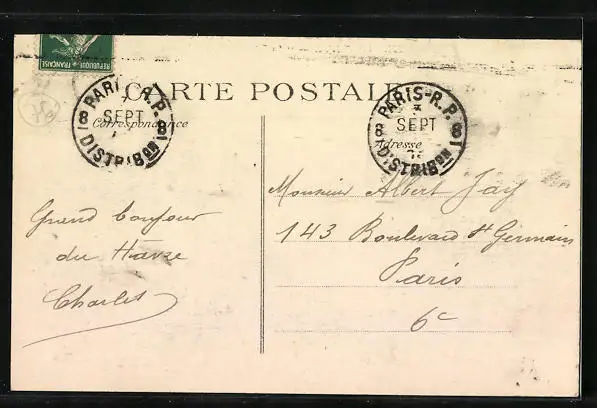 REPUBLIQUE FRANÇAISE
CARTE POSTALE
PARIS-R.P.
SEPT
8 8
DISTRIBON
PARIS-R.P.
SEPT
8 18
DISTRIBON
Correspondance
Adresse
Grand bonjour
du Havre
Charles
Monsieur Albert Jay
143 Boulevard St Germain
Paris
6e